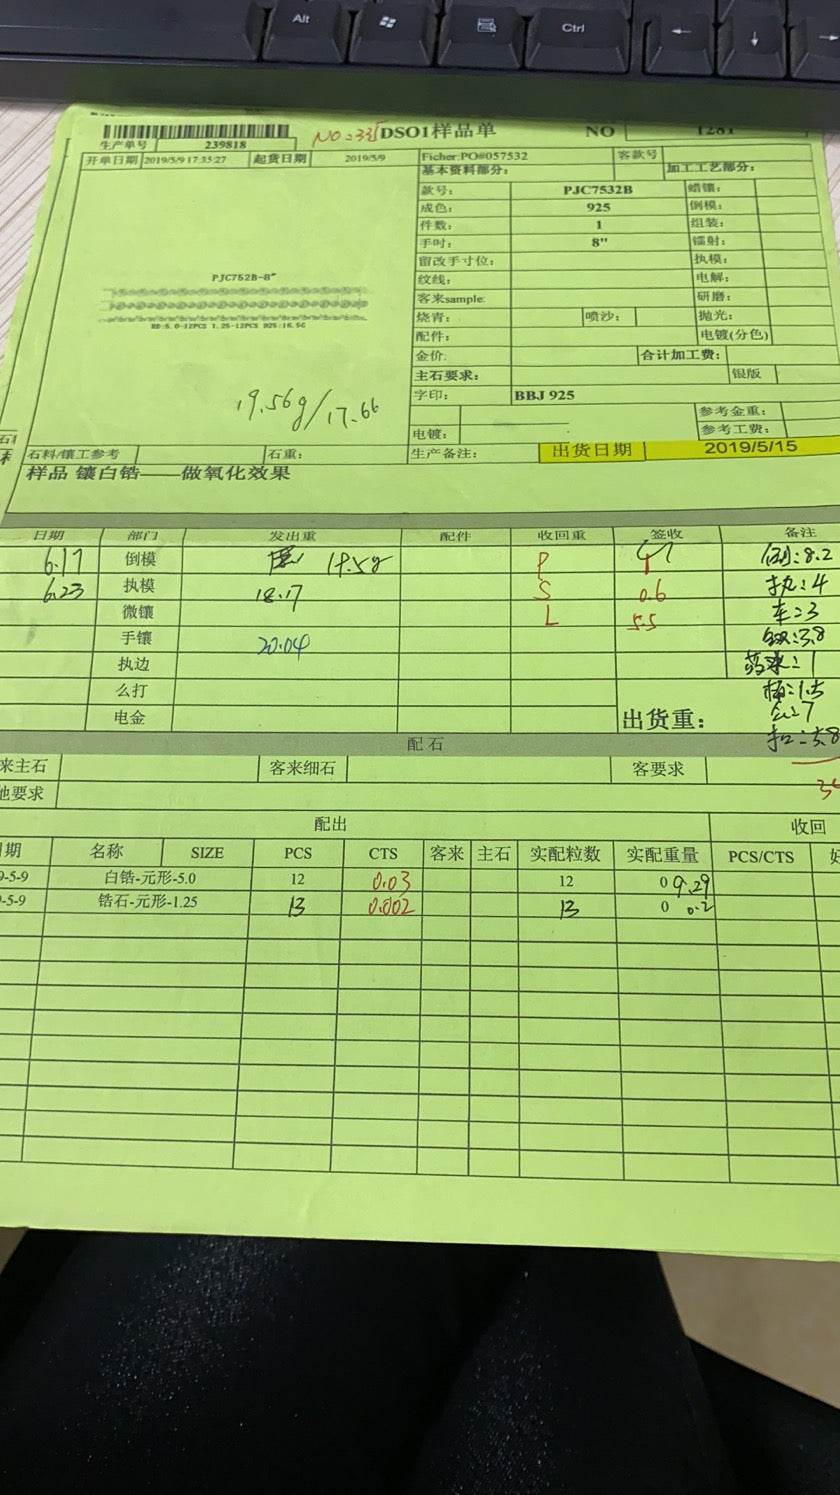 Alt
Ctrl
生产单号 239818 DSO1样品单 NO 1281
开单日期 2019/5/9 17:35:27 起货日期 2019/5/9 Ficher:PO#057532 客款号
基本资料部分: 加工工艺部分:
款号: PJC7532B 蜡镶:
成色: 925 倒模:
件数: 1 组装:
手吋: 8" 镭射:
留改手寸位: 执模:
纹线: 电解:
客来sample: 研磨:
烧青: 喷沙: 抛光:
配件: 电镀(分色)
金价: 合计加工费:
主石要求: 银版
字印: BBJ 925
参考金重:
电镀: 参考工费:
PJC752B-8"
19.56g/17.66
石料/镶工参考 石重: 生产备注: 出货日期 2019/5/15
样品 镶白锆——做氧化效果
日期 部门 发出重 配件 收回重 签收 备注
6.17 倒模 P 倒:8.2
6.23 执模 18.17 S 0.6 执:4
微镶 L 5.5 车:3
手镶 20.04 3.8
执边
么打 1.5
电金 出货重: 7
配石
来主石 客来细石 客要求
他要求
配出 收回
期 名称 SIZE PCS CTS 客来 主石 实配粒数 实配重量 PCS/CTS
9-5-9 白锆-元形-5.0 12 0.03 12 0 9.29
-5-9 锆石-元形-1.25 13 0.002 13 0 0.2